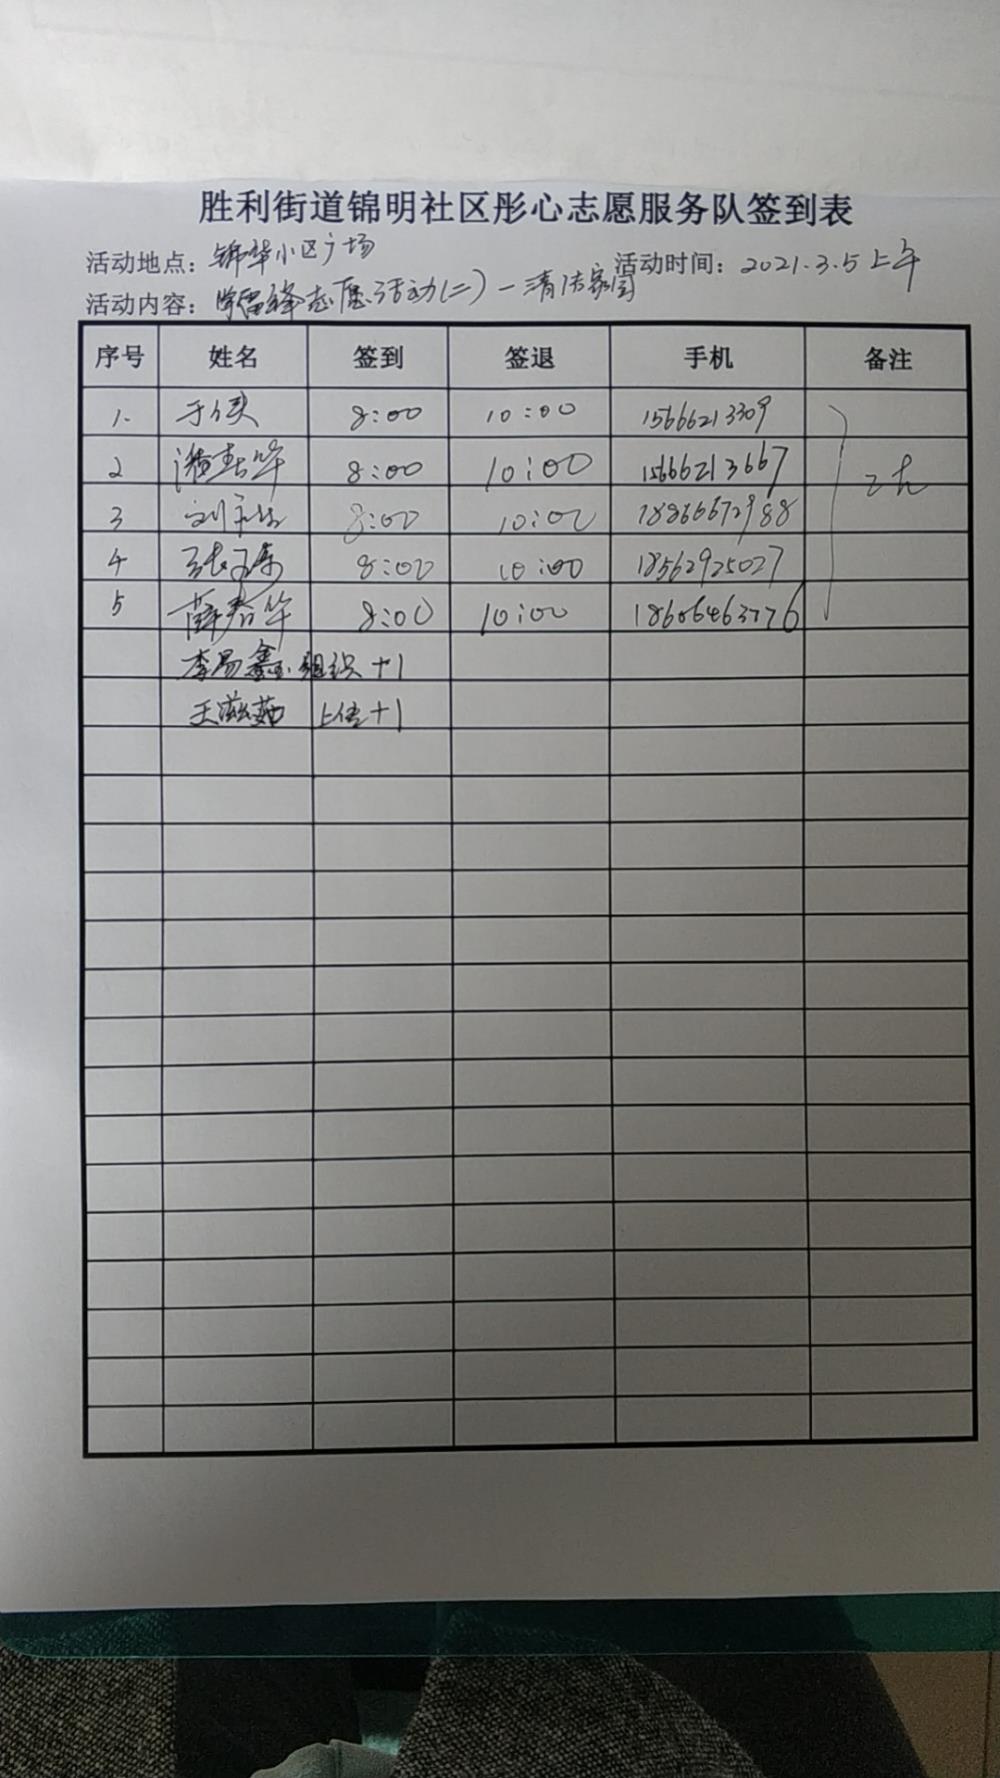 胜利街道锦明社区彤心志愿服务队签到表
活动地点：锦华小区广场 活动时间：2021.3.5上午
活动内容：学雷锋志愿活动(二)一清洁家园
序号 姓名 签到 签退 手机 备注
1. 于 8:00 10:00 15666213309
2 潘春华 8:00 10:00 15666213667
3 刘 8:00 10:00 18866672988
4 张 8:00 10:00 18562925027
5 薛春华 8:00 10:00 18606463776
李易鑫 组织+1
王滋茹 上传+1